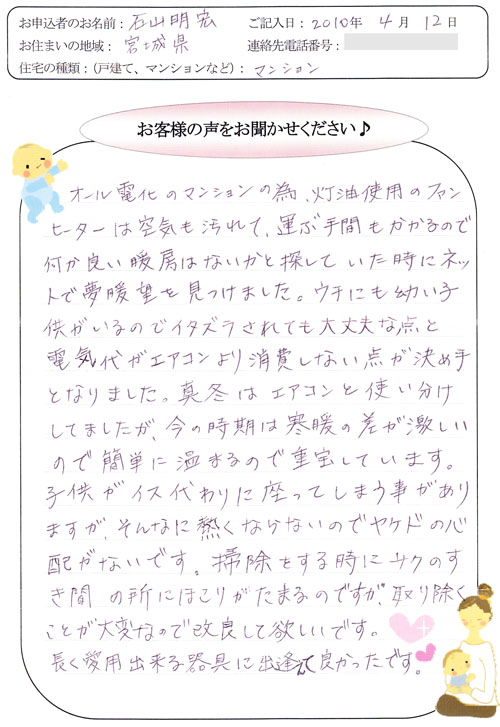 お申込者のお名前：石山明宏
ご記入日：2010年 4月 12日
お住まいの地域：宮城県
連絡先電話番号：
住宅の種類：（戸建て、マンションなど）：マンション
お客様の声をお聞かせください♪
オール電化のマンションの為、灯油使用のファン
ヒーターは空気も汚れて、運ぶ手間もかかるので
何か良い暖房はないかと探していた時にネッ
トで夢暖望を見つけました。ウチにも幼い子
供がいるのでイタズラされても大丈夫な点と
電気代がエアコンより消費しない点が決め手
となりました。真冬はエアコンと使い分け
してましたが、今の時期は寒暖の差が激しい
ので簡単に温まるので重宝しています。
子供がイス代わりに座ってしまう事があり
ますが、そんなに熱くならないのでヤケドの心
配がないです。掃除をする時にサクのす
き間の所にほこりがたまるのですが、取り除く
ことが大変なので改良して欲しいです。
長く愛用出来る器具に出逢えて良かったです。